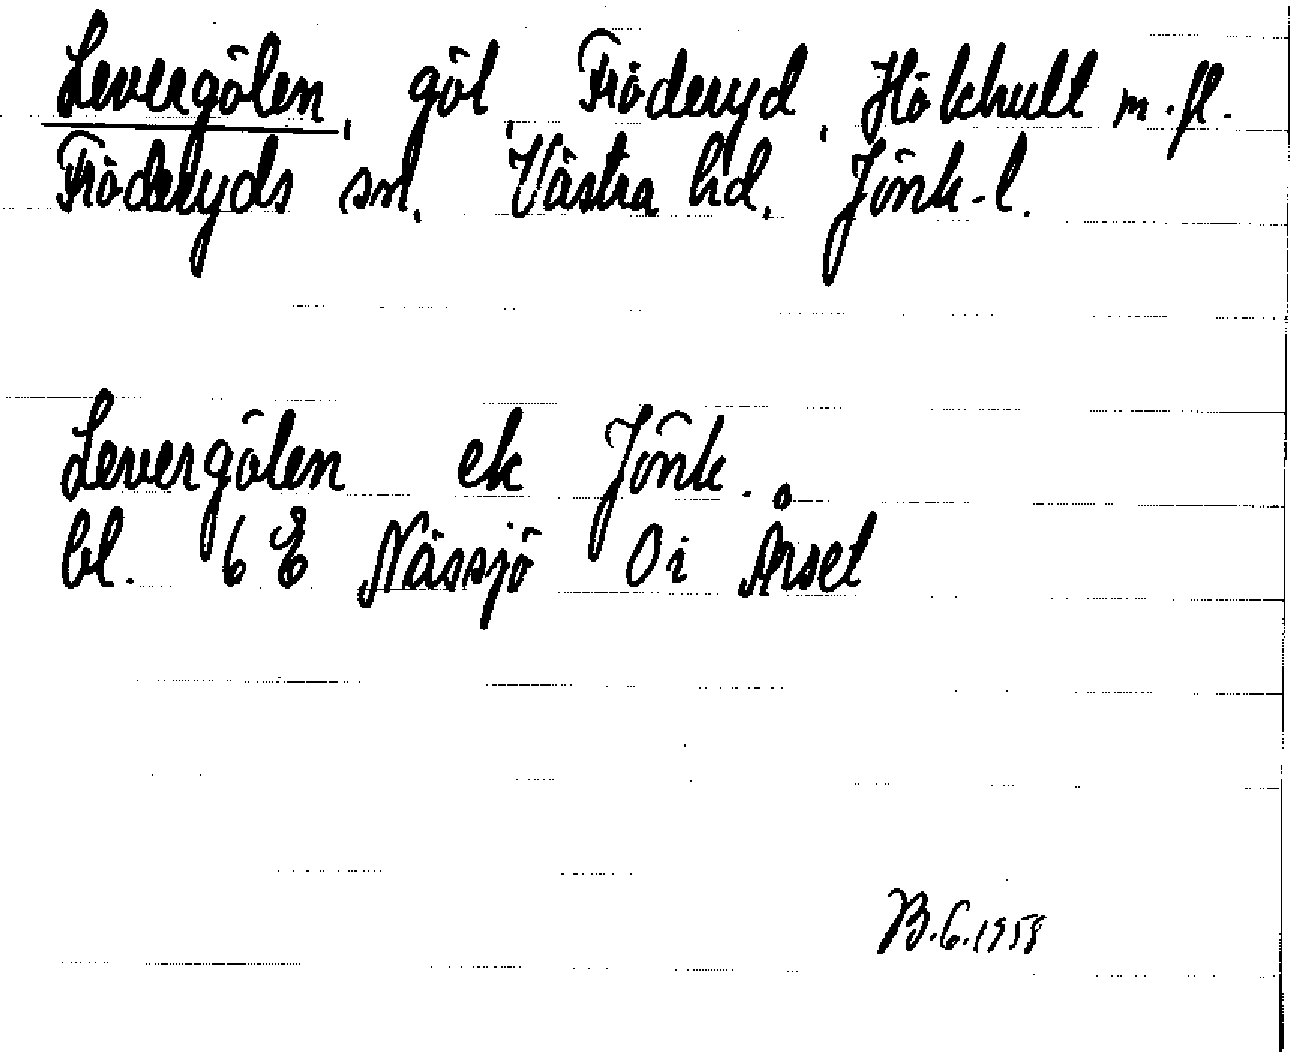 Levergölen, göl, Fröderyd, Hökhult m.fl.
Fröderyds sn. Västra hd. Jönk.l.
Levergölen ek Jönk.
bl. 6E Nässjö 0i Årset
B.G.1958